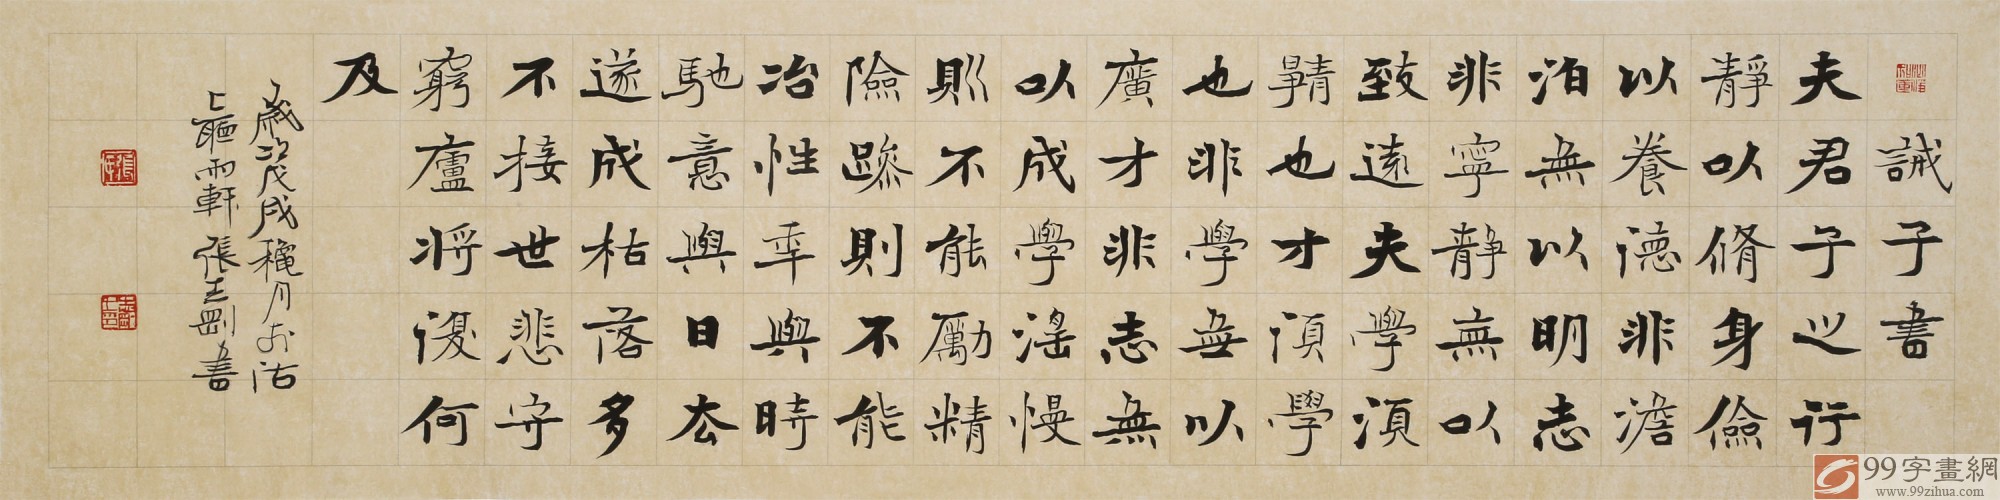 誡子書
夫君子之行
靜以脩身儉
以養德非澹
泊無以明志
非寧静無以
致遠夫學須
靜也才須學
也非學無以
廣才非志無
以成學滛慢
則不能勵精
險躁則不能
冶性年與時
馳意與日去
遂成枯落多
不接世悲守
窮廬將復何
及
歲次戊戌穐月於沽
上聽雨軒張志剛書
99字畫網
www.99zihua.com